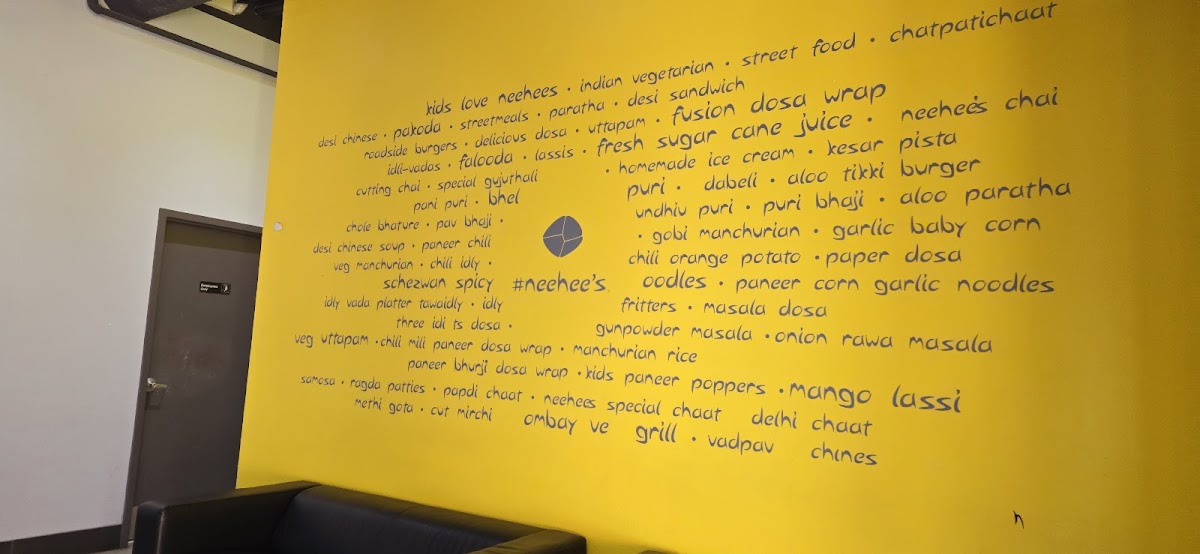 kids love neehees · indian vegetarian · street food · chatpatichaat
desi chinese · pakoda · streetmeals · paratha · desi sandwich
roadside burgers · delicious dosa · uttapam · fusion dosa wrap
idli-vadas · falooda · lassis · fresh sugar cane juice · neehee's chai
cutting chai · special gujuthali · homemade ice cream · kesar pista
pani puri · bhel puri · dabeli · aloo tikki burger
undhiu puri · puri bhaji · aloo paratha
chole bhature · pav bhaji · · gobi manchurian · garlic baby corn
desi chinese soup · paneer chili chili orange potato · paper dosa
veg manchurian · chili idly ·
schezwan spicy #neehee's oodles · paneer corn garlic noodles
idly vada platter tawaidly · idly fritters · masala dosa
three idi ts dosa · gunpowder masala · onion rawa masala
veg uttapam · chili mili paneer dosa wrap · manchurian rice
paneer bhurji dosa wrap · kids paneer poppers · mango lassi
samosa · ragda patties · papdi chaat · neehees special chaat delhi chaat
methi gota · cut mirchi ombay ve grill · vadpav chines
n